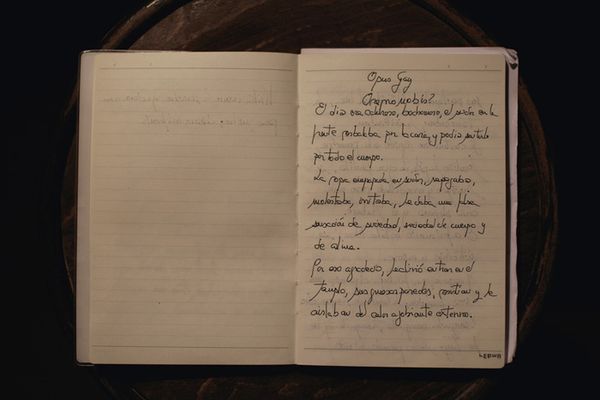 Opus Gay
Oremo nobis?
El día era caluroso, bochornoso, el sudor en la
frente resbalaba por la cara, y podía sentirlo
por todo el cuerpo.
La ropa empapada en sudor, se pegaba,
molestaba, irritaba, le daba una falsa
sensación de suciedad, suciedad de cuerpo y
de alma.
Por eso agradeció, entrar en el
templo, sus gruesas paredes, y le
aislaban del calor agobiante externo.